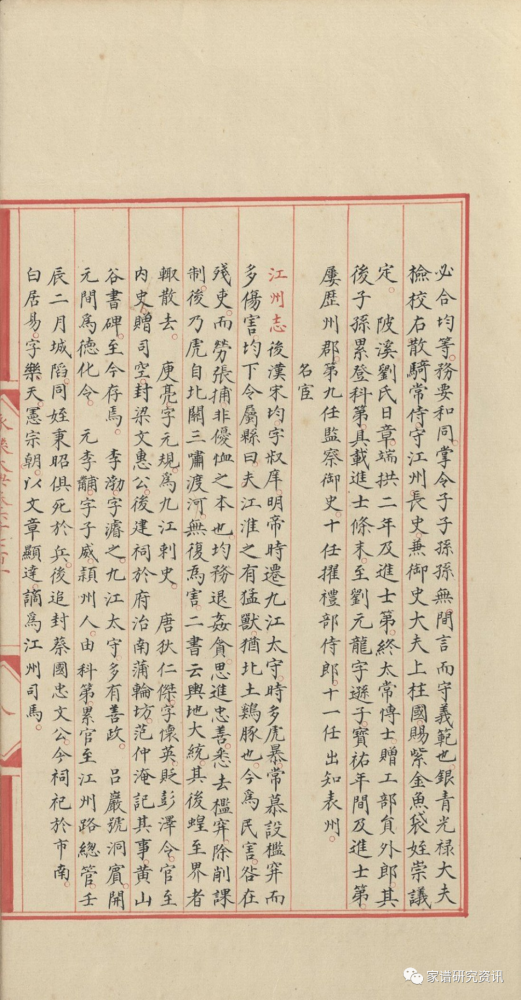 必合均等。務要和同。掌令子子孫孫。無間言而守義範也。銀青光祿大夫
檢校右散騎常侍。守江州長史。兼御史大夫上柱國。賜紫金魚袋。姪崇議
定。 陂溪劉氏日章。端拱二年及進士第。終太常博士。贈工部負外郎。其
後子孫累登科第。具載進士條末。至劉元龍字遜子。寶祐年間及進士第。
屢歷州郡。第九任監察御史。十任擢禮部侍郎。十一任出知袁州。
名宦
江州志後漢宋均字叔庠。明帝時遷九江太守。時多虎暴。常募設檻穽。而
多傷害。均下令屬縣曰。夫江淮之有猛獸。猶北土鷄豚也。今為民害。咎在
殘吏。而勞張捕。非優恤之本也。均務退姦貪。思進忠善。悉去檻穽。除削課
制。後乃虎自北關三嘯渡河。無復為害。二書云。輿地大統。其後蝗至界者
輒散去。 庾亮字元規。為九江刺史。 唐狄仁傑字懷英。貶彭澤令。官至
内史。贈司空。封梁文惠公。後建祠於府治南蒲輪坊。范仲淹記其事。黄山
谷書碑。至今存焉。 李渤字濬之。九江太守。多有善政。 呂巖號洞賓。開
元間為德化令。 元李黼字子威。潁州人。由科第累官至江州路總管。壬
辰二月城陷。同姪秉昭俱死於兵。後追封蔡國忠文公。今祠祀於市南。
白居易。字樂天。憲宗朝。以文章顯達。謫為江州司馬。
家谱研究资讯